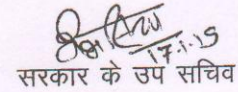 17.1.15
सरकार के उप सचिव